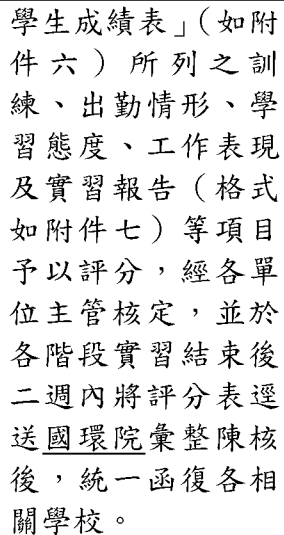 學生成績表」(如附
件六)所列之訓
練、出勤情形、學
習態度、工作表現
及實習報告(格式
如附件七)等項目
予以評分，經各單
位主管核定，並於
各階段實習結束後
二週內將評分表逕
送國環院彙整陳核
後，統一函復各相
關學校。